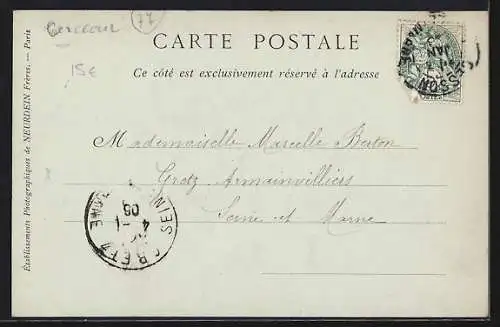 77
15€
CARTE POSTALE
Ce côté est exclusivement réservé à l'adresse
Mademoiselle Marcelle Berton
Gretz Armainvilliers
Seine et Marne
Établissements Photographiques de NEURDEIN Frères. — Paris
GRETZ
SEINE
MARNE
CESSON